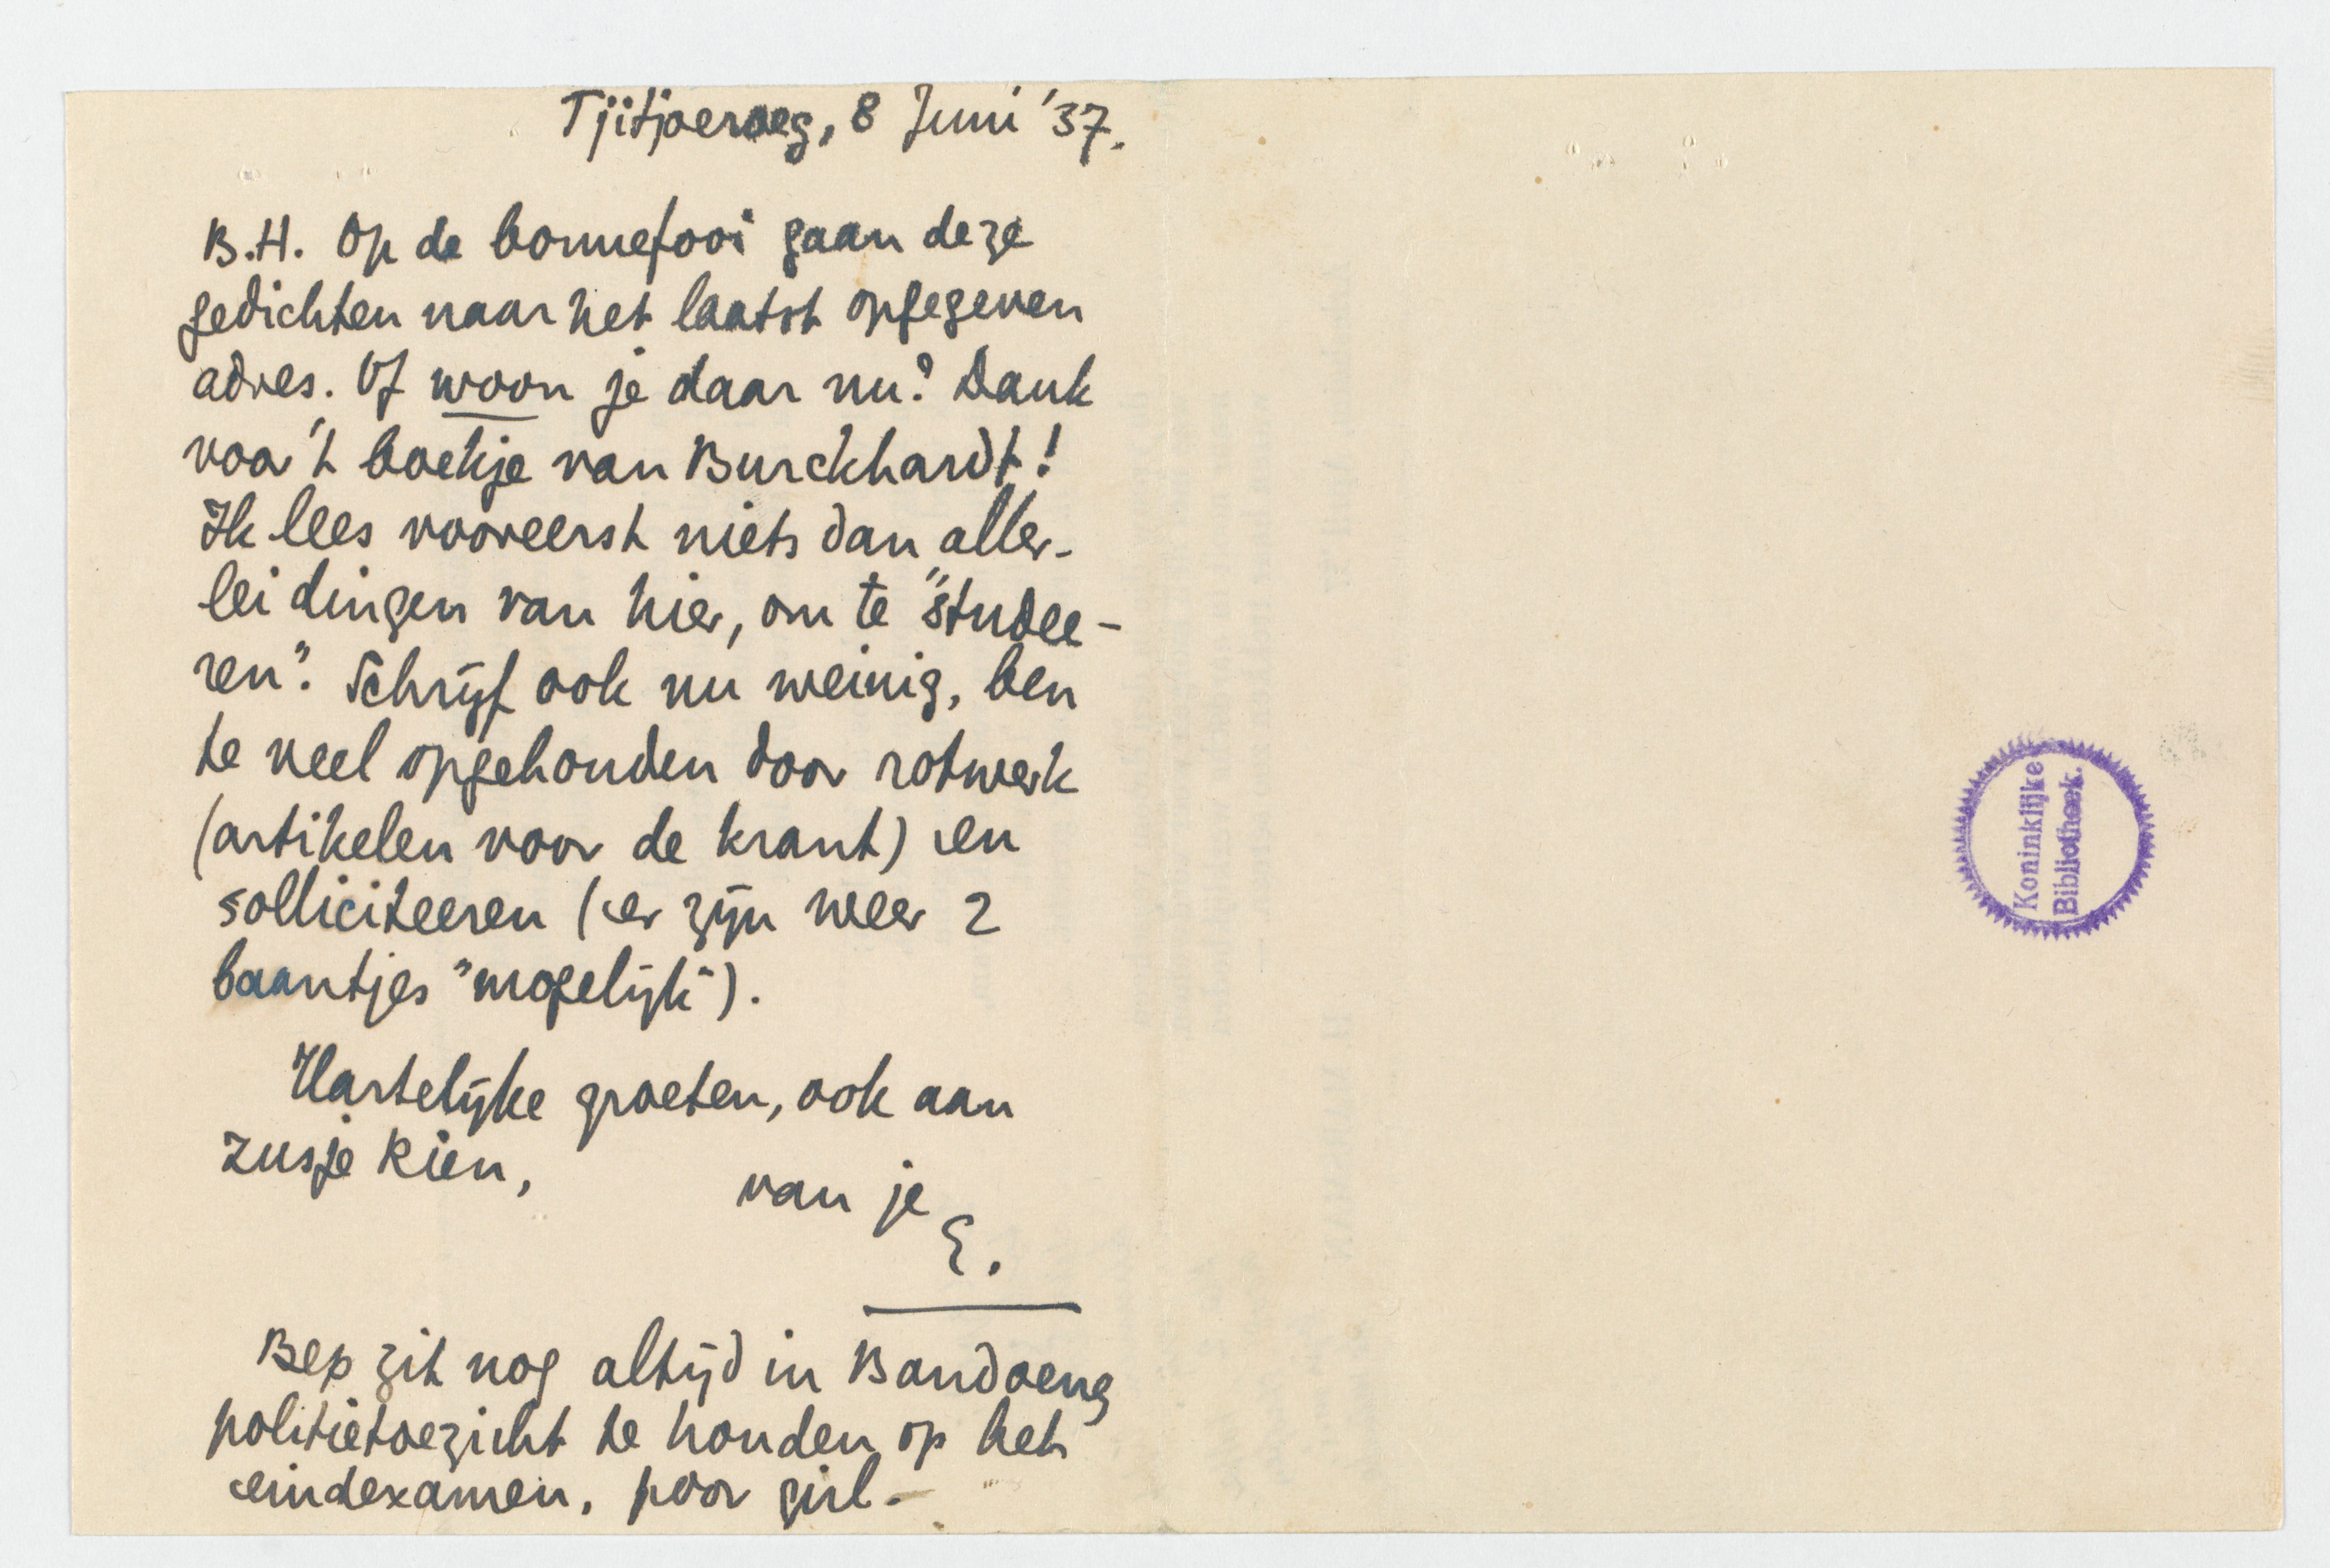 Tjitjoeroeg, 8 Juni '37.
B.H. Op de bonnefooi gaan deze
gedichten naar het laatst opgegeven
adres. Of woon je daar nu? Dank
voor 't boekje van Burckhardt!
Ik lees vooreerst niets dan aller-
lei dingen van hier, om te "studee-
ren". Schrijf ook nu weinig, ben
te veel opgehouden door rotwerk
(artikelen voor de krant) en
solliciteeren (er zijn weer 2
baantjes "mogelijk").
Hartelijke groeten, ook aan
zusje Rien,
van je
E.
Bep zit nog altijd in Bandoeng
politietoezicht te houden op het
eindexamen, poor girl.
Koninklijke
Bibliotheek.